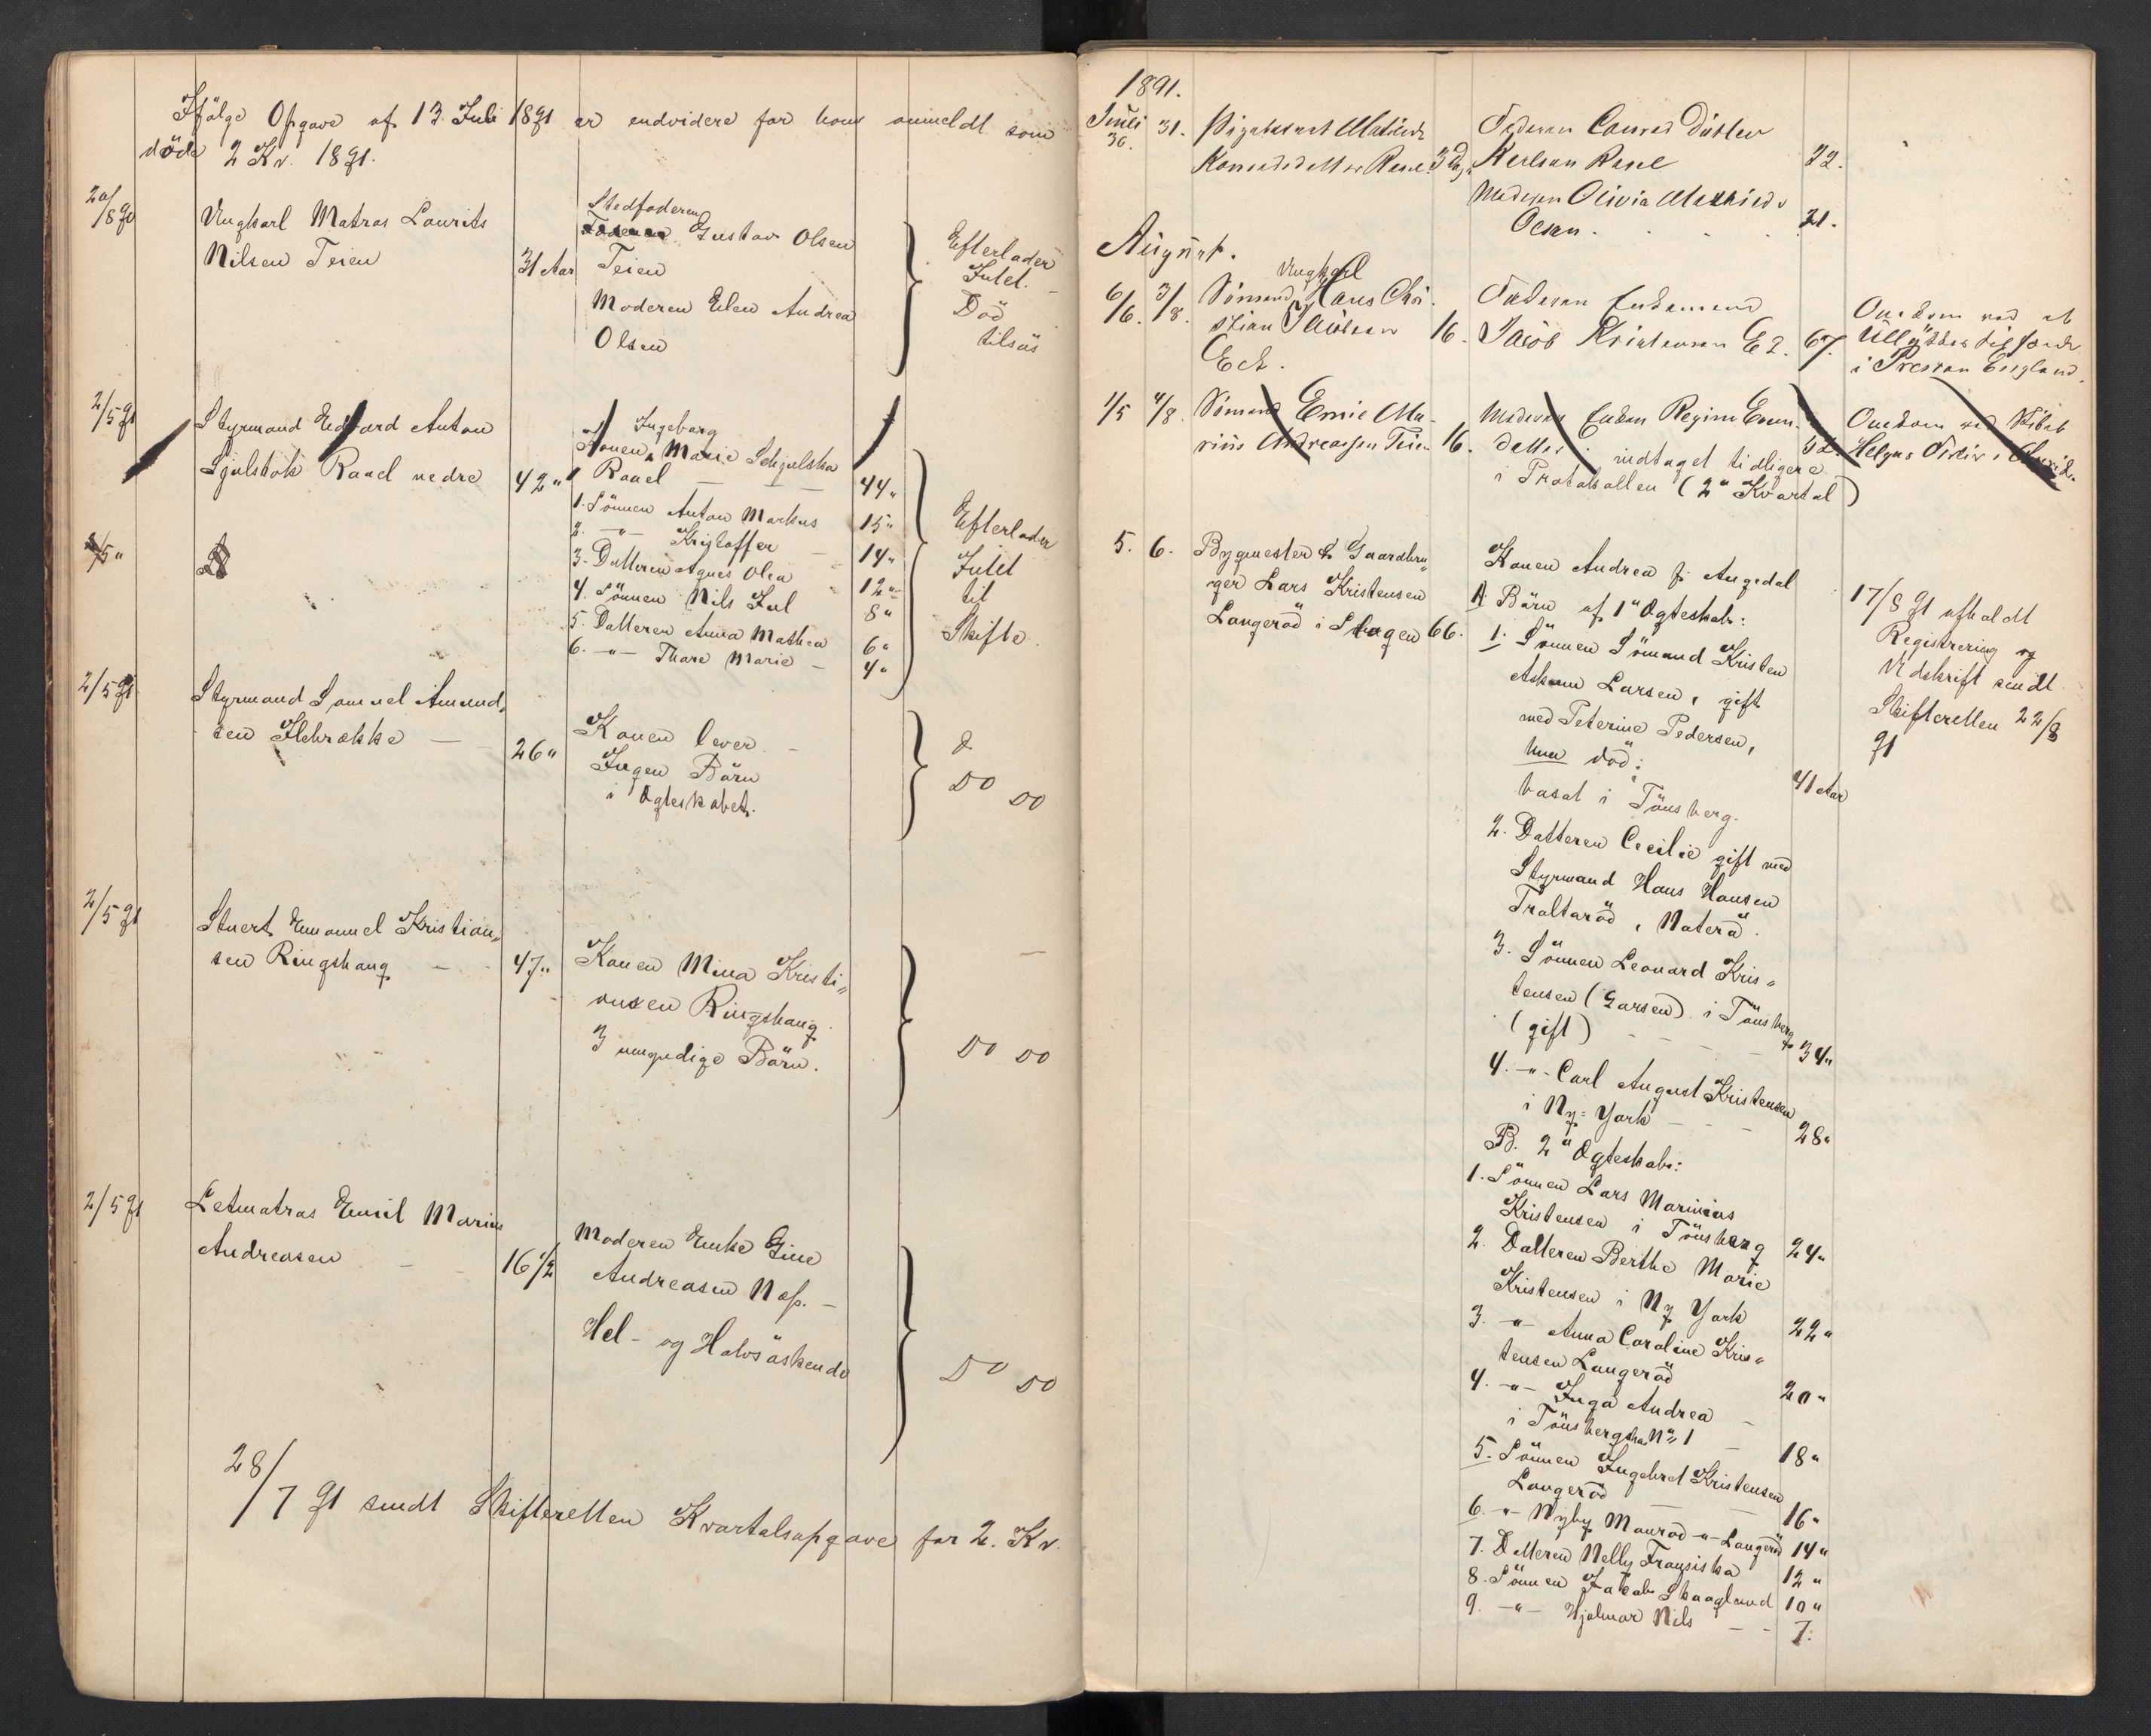 Ifölge Opgave af 13. Juli 1891 er endvidere for hous anmeldt som
döde 2 Kv. 1891.
20/8 90
Ungkarl Matros Laurits
Nilsen Teien
31 Aar
Stedfaderen
Gustav Olsen
Teien
Moderen Elen Andrea
Olsen
Efterlader
Intet.
Död
tilsös
2/5 91
Styrmand Edvard Anton
Sjulstok Raael nedre
42 "
Ingeborg
Konen, Marie Schjulska
Raael
44 "
1. Sönnen Anton Markus
15 "
2. - " - Kristoffer
14 "
3. Datteren Agnes Olea
12 "
4. Sönnen Nils Jul
8 "
5. Datteren Anna Mathea
6 "
6. - " - Thora Marie -
4 "
Efterlader
Intet
til
Skifte.
2/5 91
Styrmand Samuel Amund,
sen Ilebrække
26 "
Konen lever -
Ingen Börn
i Ægteskabet.
Do Do
2/5 91
Stuert Emanuel Kristian,,
sen Ringshaug -
47 "
Konen Mina Kristi,,
ansen Ringshaug.
3 umyndige Börn.
Do Do
2/5 91
Letmatros Emil Marius
Andreasen - -
16 1/2
Moderen Enke Gine
Andreasen Næs. -
Hel- og Halvsöskende
Do Do
28/7 91 sendt Skifteretten Kvartalsopgave for 2. Kv.
1891.
Juli
30. 31. Pigebarnet Mathilde
Konradsdatter Raael. 3 Dage
Faderen Conrad Ditlev
Karlsen Raael 22.
Moderen Olivia Mathilde
Olsen . . . 21.
August.
Ungkarl
6/6. 3/8. Sömand Hans Chri-
stian Jacobsen 16.
Eek.
Faderen Enkemand
Jacob Kristensen Ek. 67.
Omkom ved et
til sends
i Preston England.
1/5 4/8. Sömand Emil Ma-
rius Andreassen Teien 16.
Moderen Enken Regine Even-
datter . indtaget tidligere
i Protokollen (2det Kvartal)
52.
Omkom med Skibet
5. 6. Bygmester & Gaardbru,,
ger Lars Kristensen
Langeröd i Slagen 66.
Konen Andrea f. Augedal
A. Börn af 1ste Ægteskab:
1. Sönnen Sömand Kristen
Larsen, gift
med Peterine Pedersen,
hun död;
41 Aar
bosat i Tönsberg.
2. Datteren Cecilie gift med
Styrmand Hans Hansen
Traltaröd, Nöterö.
3. Sönnen Leonard Kris,,
tensen (Larsen) i Tönsberg
(gift) - - - - 34 "
4. - " - Carl August Kristensen
i Ny-York - - - 28 "
B. 2det Ægteskab:
1. Sönnen Lars Marinius
Kristensen i Tönsberg 24 "
2. Datteren Berthe Marie
Kristensen i Ny York 22 "
3. - " - Anna Caroline Kris,,
tensen Langeröd 20 "
4. - " - Inga Andrea -
i Tönsberg No 1 - 18 "
5. Sönnen Ingebret Kristensen
Langeröd - 16 "
6. - " - Nyby Monrad - " - Langeröd 14 "
7. Datteren Nelly Fransiska 12 "
8. Sönnen Jakob Skaagland 10 "
9. - " - Hjalmar Nils - - 7.
17/8 91 afholdt
Registrering og
Udskrift sendt
Skifteretten 22/8
91